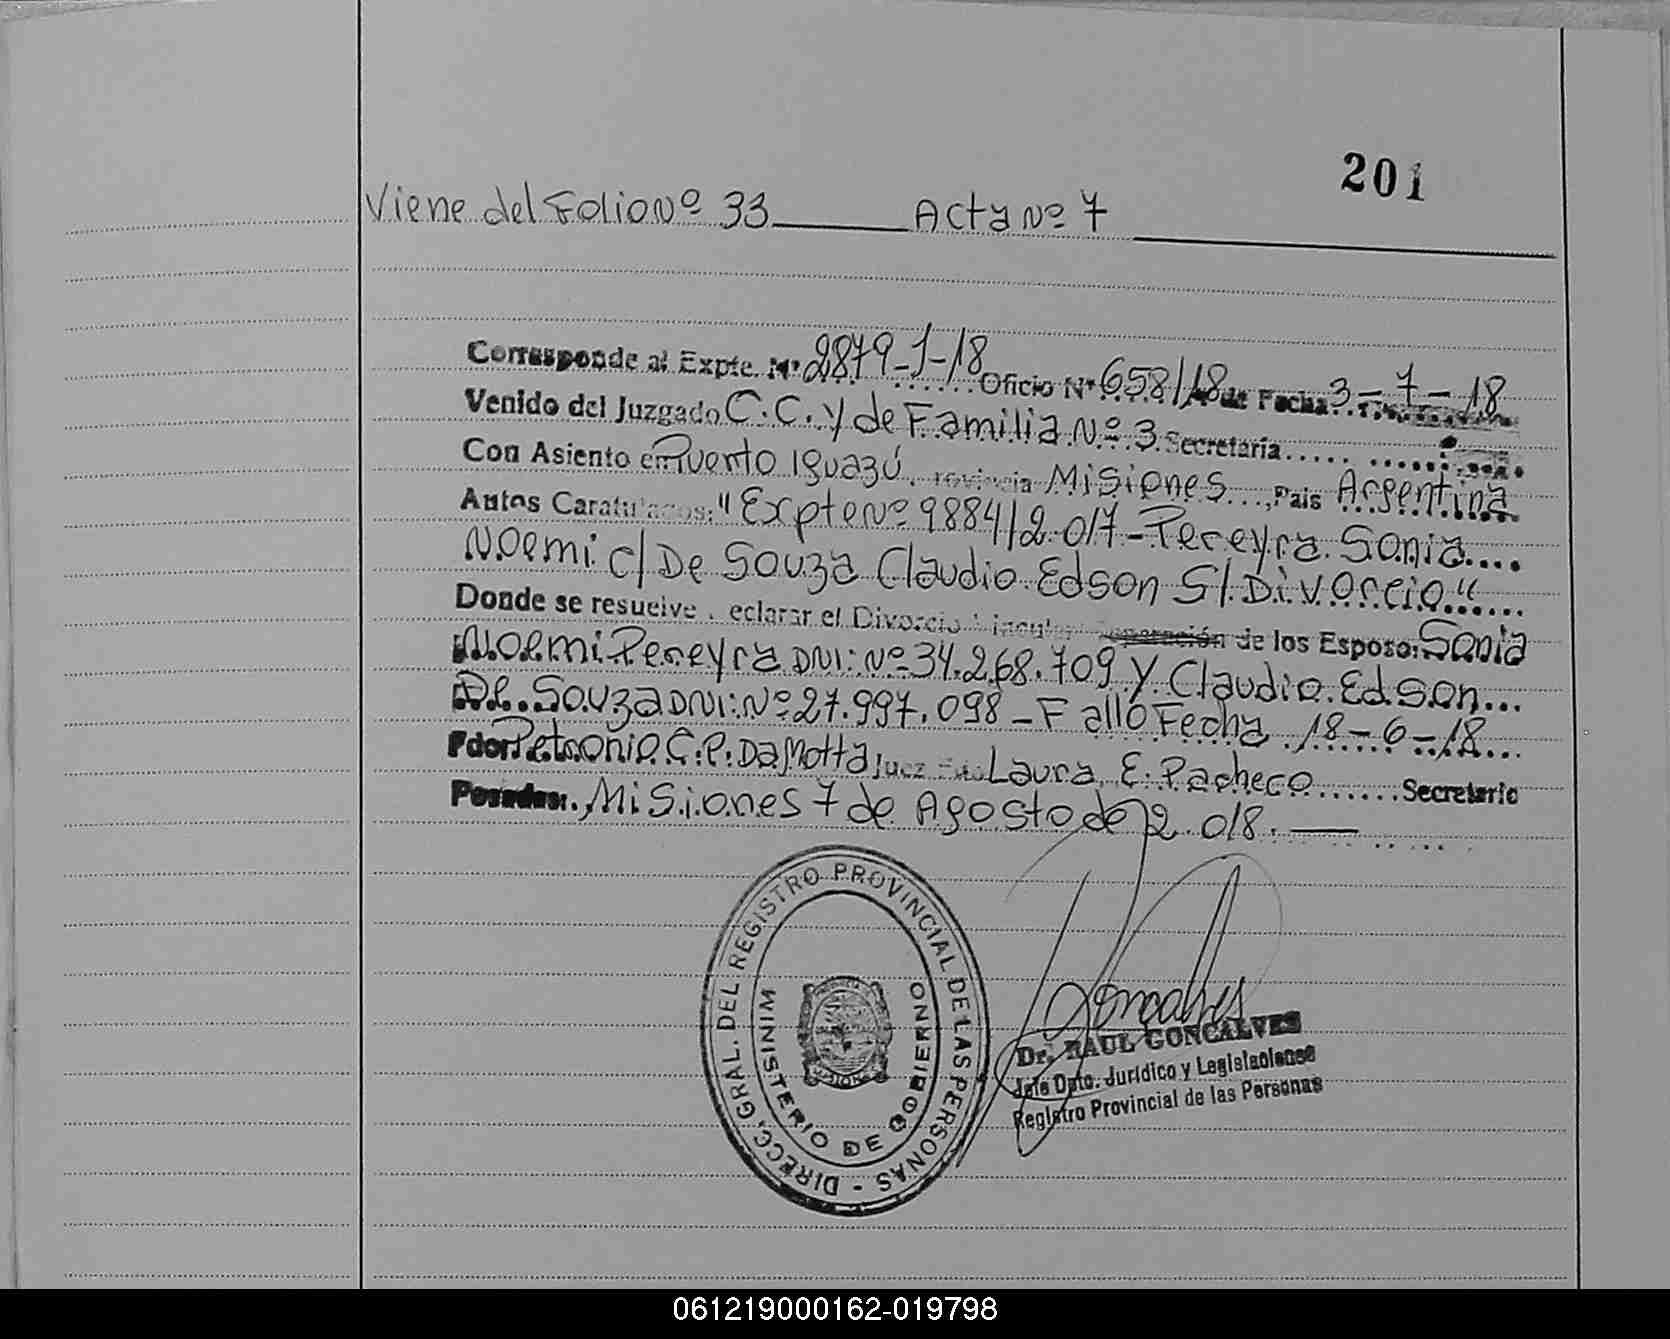 201
Viene del Folio Nº 33 Acta Nº 7
Corresponde al Expte. Nº 2879-J-18 Oficio Nº 658/18 de Fecha 3-7-18
Venido del Juzgado C.C. y de Familia Nº 3 Secretaría
Con Asiento en Puerto Iguazú, Provincia Misiones, País Argentina
Autos Caratulados: "Expte Nº 9884/2.017 - Pereyra Sonia
Noemi c/ De Souza Claudio Edson S/ Divorcio"
Donde se resuelve declarar el Divorcio Vincular Separación de los Esposo: Sonia
Noemi Pereyra DNI: Nº 34.268.709 y Claudio Edson
De Souza DNI: Nº 27.997.098 - Falló Fecha 18-6-18
Fdor Petronio C.P. Da Motta Juez Laura E. Pacheco Secretario
Posadas, Misiones 7 de Agosto de 2.018.
DIRECC. GRAL. DEL REGISTRO PROVINCIAL DE LAS PERSONAS -
MINISTERIO DE GOBIERNO
Goncalves
Dr. RAUL GONCALVES
Jefe Dpto. Jurídico y Legislaciones
Registro Provincial de las Personas
061219000162-019798